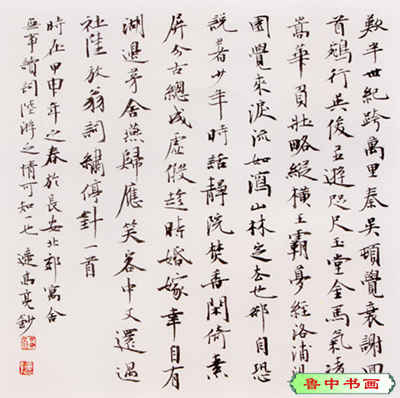 歎半世紀跨萬里秦吳頓覺衰謝回
首鵷行英俊並遊咫尺玉堂金馬氣凌
嵩華負壯略縱橫王霸夢經洛浦梁
園覺來淚流如瀉山林定去也却自恐
說著少年時話靜院焚香閑倚素
屏今古總成虛假趁時婚嫁幸自有
湖邊茅舍燕歸應笑客中又還過
社陸放翁詞繡停針一首
時在甲申年之春於長安北郊寓舍
無事讀詞陸游之情可知一也 高亮鈔
鲁中书画